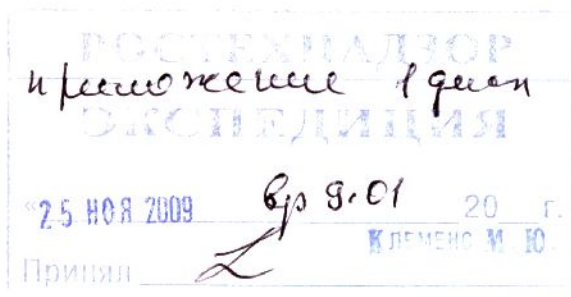 РОСТЕХНАДЗОР
приложение 1 диск
ЭКСПЕДИЦИЯ
"25 НОЯ 2009 вр 9.01 20 г.
КЛЕМЕНС М. Ю.
Принял